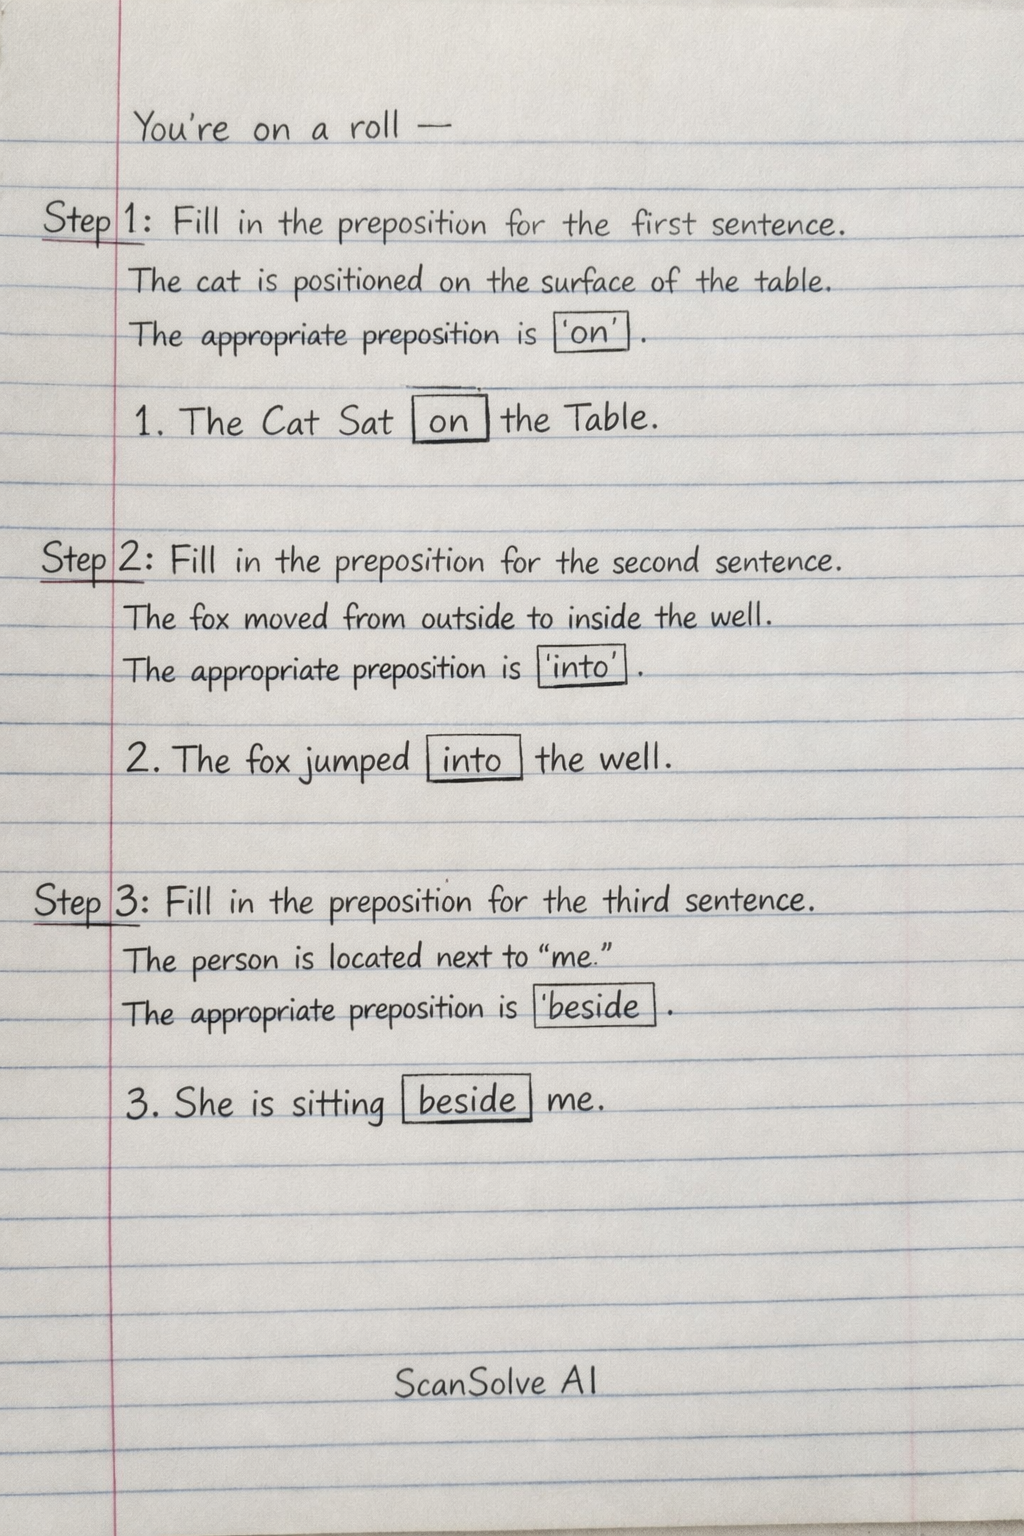 You're on a roll —
Step 1: Fill in the preposition for the first sentence.
The cat is positioned on the surface of the table.
The appropriate preposition is 'on'.
1. The Cat Sat on the Table.
Step 2: Fill in the preposition for the second sentence.
The fox moved from outside to inside the well.
The appropriate preposition is 'into'.
2. The fox jumped into the well.
Step 3: Fill in the preposition for the third sentence.
The person is located next to “me.”
The appropriate preposition is 'beside.
3. She is sitting beside me.
ScanSolve AI